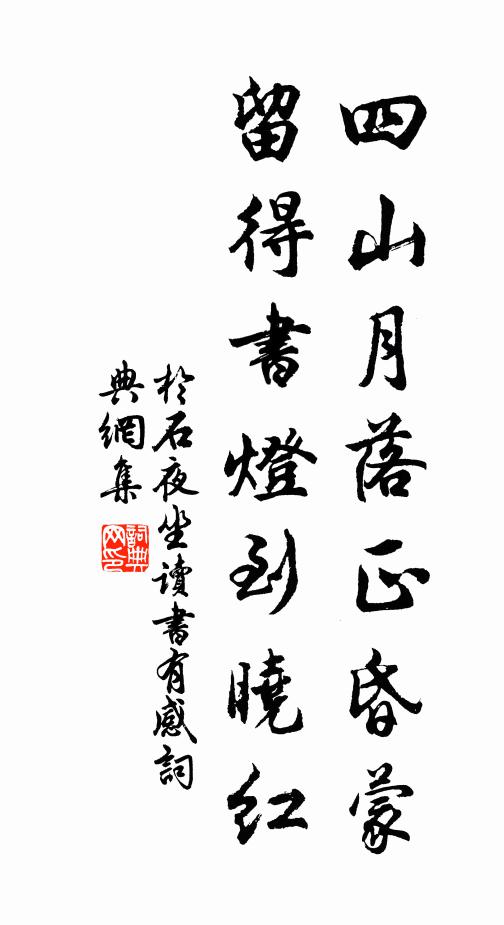 四山月落正昏蒙
留得書燈到曉紅
於石夜坐讀書有感詞
典網集
詞典網印